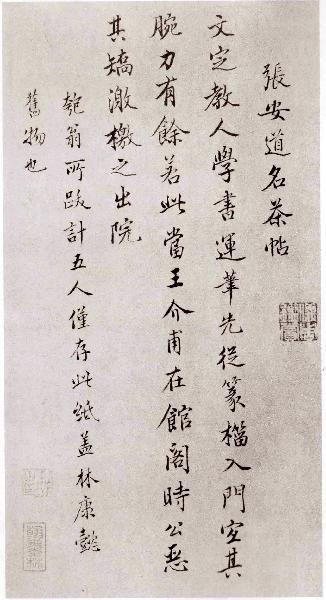 張安道名茶帖
文定教人學書運筆先從篆楷入門宜其
腕力有餘若此當王介甫在館閣時公惡
其矯激檄之出院
匏翁所跋計五人僅存此紙蓋林康懿
舊物也